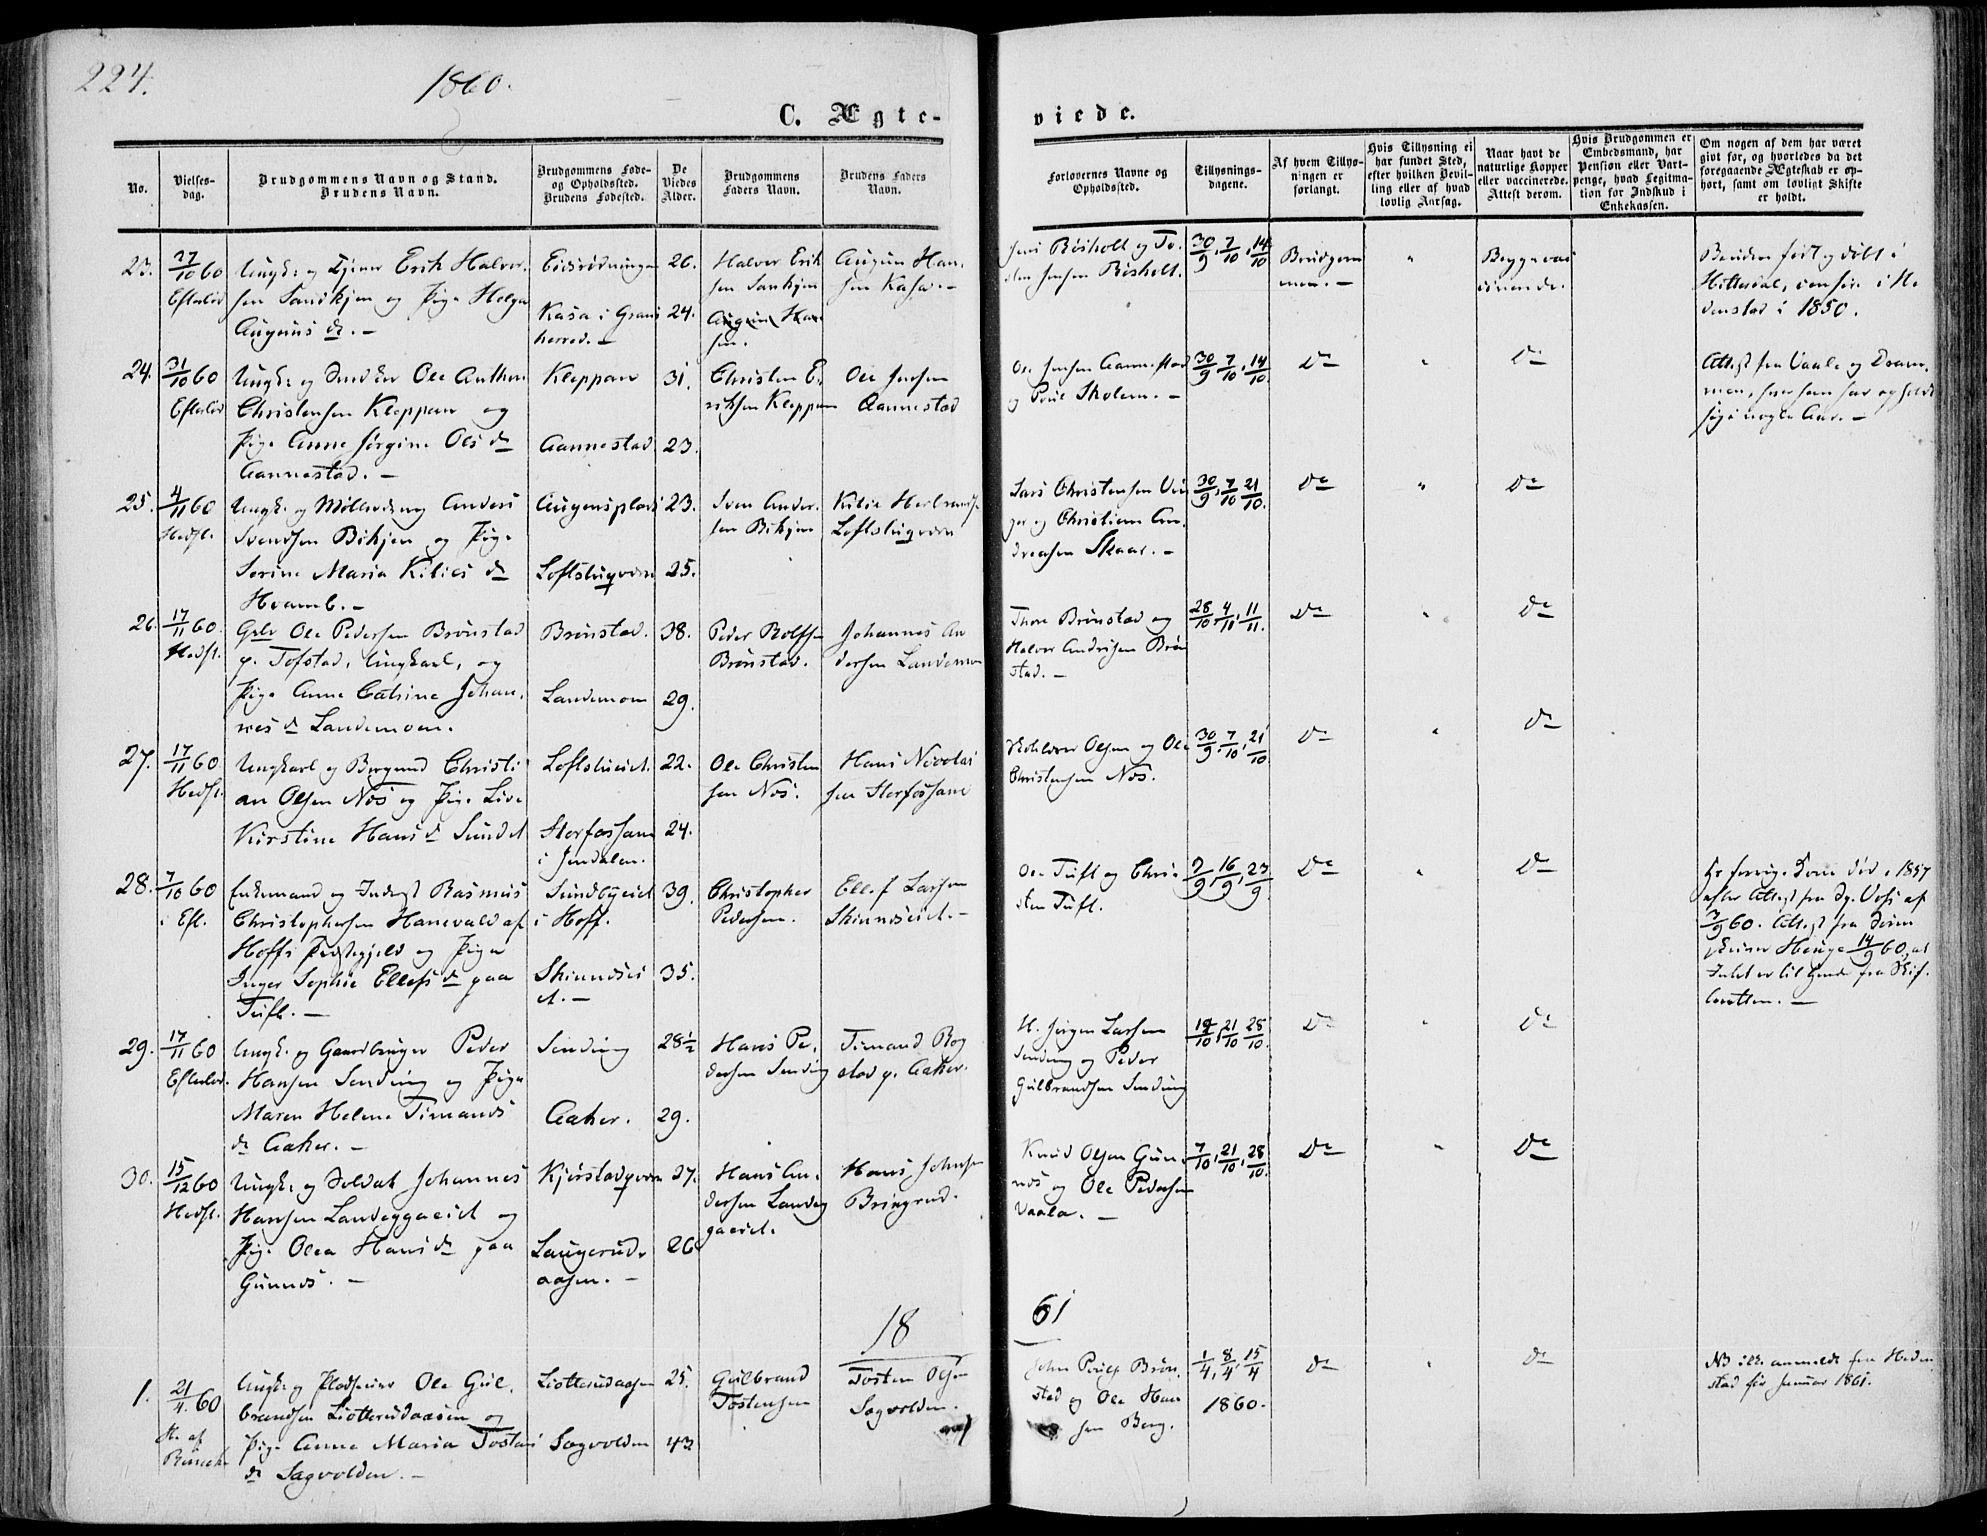 224.
1860.
C. Ægte-
viede.
No.
Vielses-
dag.
Brudgommens Navn og Stand.
Brudens Navn.
Brudgommens Føde-
og Opholdssted.
Brudens Fødested.
De
Viedes
Alder.
Brudgommens
Faders Navn.
Brudens Faders
Navn.
Forlovernes Navne og
Opholdssted.
Tillysnings-
dagene.
Af hvem Tillys-
ningen er
forlangt.
Hvis Tillysning ei
har fundet Sted,
efter hvilken Bevil-
ling eller af hvad
lovlig Aarsag.
Naar havt de
naturlige Kopper
eller vaccinerede.
Attest derom.
Hvis Brudgommen er
Embedsmand, har
Pension eller Vart-
penge, hvad Legitima-
tion for Indskud i
Enkekassen.
Om nogen af dem har været
gift før, og hvorledes da det
foregaaende Ægteskab er op-
hørt, samt om lovligt Skifte
er holdt.
23.
27/10 60
Efteløt
Ungk. og Tjener Erik Halvor-
sen Sandkjen og Pige Helga
Auguns dr. -
Kasa i Grans
herred. -
26.
24.
Halvor Erik
sen Sankjen
Augun Han-
sen Kasa. -
Jens Bøsholt og To-
Jensen Bøsholt.
30/9, 7/10, 14/10
Brudgom
men. -
"
Begge vac
cinerede.
Bruden født og døbt i
Hitterdal,
1850.
24.
31/10 60
Efteløt
Ungk. og Ole Anthon
Christensen Kleppan og
Pige Anne Jørgine Ols dr
Aannestad. -
Kleppan
Aannestad
31.
23.
Christen E-
riksen Kleppan
Ole Jensen
Aannestad
Ole Jensen Aannestad
og Poul Skolem. -
30/9, 7/10, 14/10
Do
"
Do
Attest fra Vaale og Dram-
men, hvor han har opholdt
sig i nogle Aar. -
25.
4/11 60
Hedst.
Ungk. og Anders
Svendsen Bikjen og Pige
Serine Maria Kilies dr
Hvamb. -
Augensplads
Loftsluqværn
23.
25.
Sven Ander-
sen Bikjen
Kilie Herbrands.
Loftsluqværn
Lars Christensen
og Christian An-
dreasen Skaar. -
30/9, 7/10, 21/10
Do
"
Do
26.
17/11 60.
Hedst.
Gbr Ole Pedersen Brønstad
p. Tofstad, Ungkarl, og
Pige Anne Catrine Johan-
nes dr Landemoen.
Brønstad.
Landemoen
38.
29.
Peder Rolfsen
Brønstad.
Johannes An
dersen Landemoen
Thore Brønstad og
Halvor Andersen Brøn
stad. -
28/10, 4/11, 11/11.
Do
"
Do
27.
17/11 60
Hedst.
Ungkarl og Bergmd Christi
an Olsen Næs og Pige Live
Kirstine Hans dr Sundet
Loftslueiet.
Storfossane
i Jondalen.
22.
24.
Ole Christen
sen Næs.
Hans Nicolai
sen Storfossane
Olsen og Ole
Christensen Næs.
30/9, 7/10, 21/10
Do
"
Do
28.
7/10 60
i Eft.
Enkemand og Inderst Rasmus
Christophersen Hanevald af
Hoffs Præstegjeld og Pige
Inger Sophie Ellefs dr paa
Tuft. -
Sundbyeiet
i Hoff.
Skinnæsei
et. -
39.
35.
Christopher
Pedersen.
Ellef Larsen
Skinnæseiet. -
Ole Tuft og Chri-
sten Tuft.
9/9, 16/9, 23/9
Do
"
Do
Hs forrige Kone død i 1857
efter Attest fra af
3/9 60. Attest fra
14/9 60, at
Intet er til Hinder fra Skif-
teretten. -
29.
17/11 60
Efteløt.
Ungk. og Gaardbruger Peder
Hansen Sending og Pige
Maren Helene Timands
dr Aaker. -
Sending
Aaker.
28½
29.
Hans Pe-
dersen Sending
Timand Rog
stad p. Aaker.
H. Jørgen Larsen
Sending og Peder
Gulbrandsen Sending
14/10, 21/10, 28/10.
Do
"
Do
30.
15/12 60
Hedst.
Ungk. og Soldat Johannes
Hansen Landeggaeiet og
Pige Olea Hans dr paa
Gunnæs. -
Kjørstadqvern
Laugerud-
aasen. -
27.
26
Hans An-
dersen Landeg
gaeiet.
Hans Johnsen
Bringrud.
Knud Olsen Gun-
næs og Ole Pedersen
Vaala. -
7/10, 21/10, 28/10.
Do
"
Do
18
61
1.
21/4 60
Ungk. og Pladseier Ole Gul-
brandsen Liotterudaasen og
Pige Anne Maria Tostens
dr Sagvolden. -
Liotterudaasen
Sagvolden
25.
43.
Gulbrand
Tostensen
Tosten Olsen
Sagvolden.
John Pouls. Brøn-
stad og Ole Han
sen Berg.
1/4, 8/4, 15/4
1860.
Do
"
Do
NB ikke anmeldt fra Heden
stad før Januar 1861.